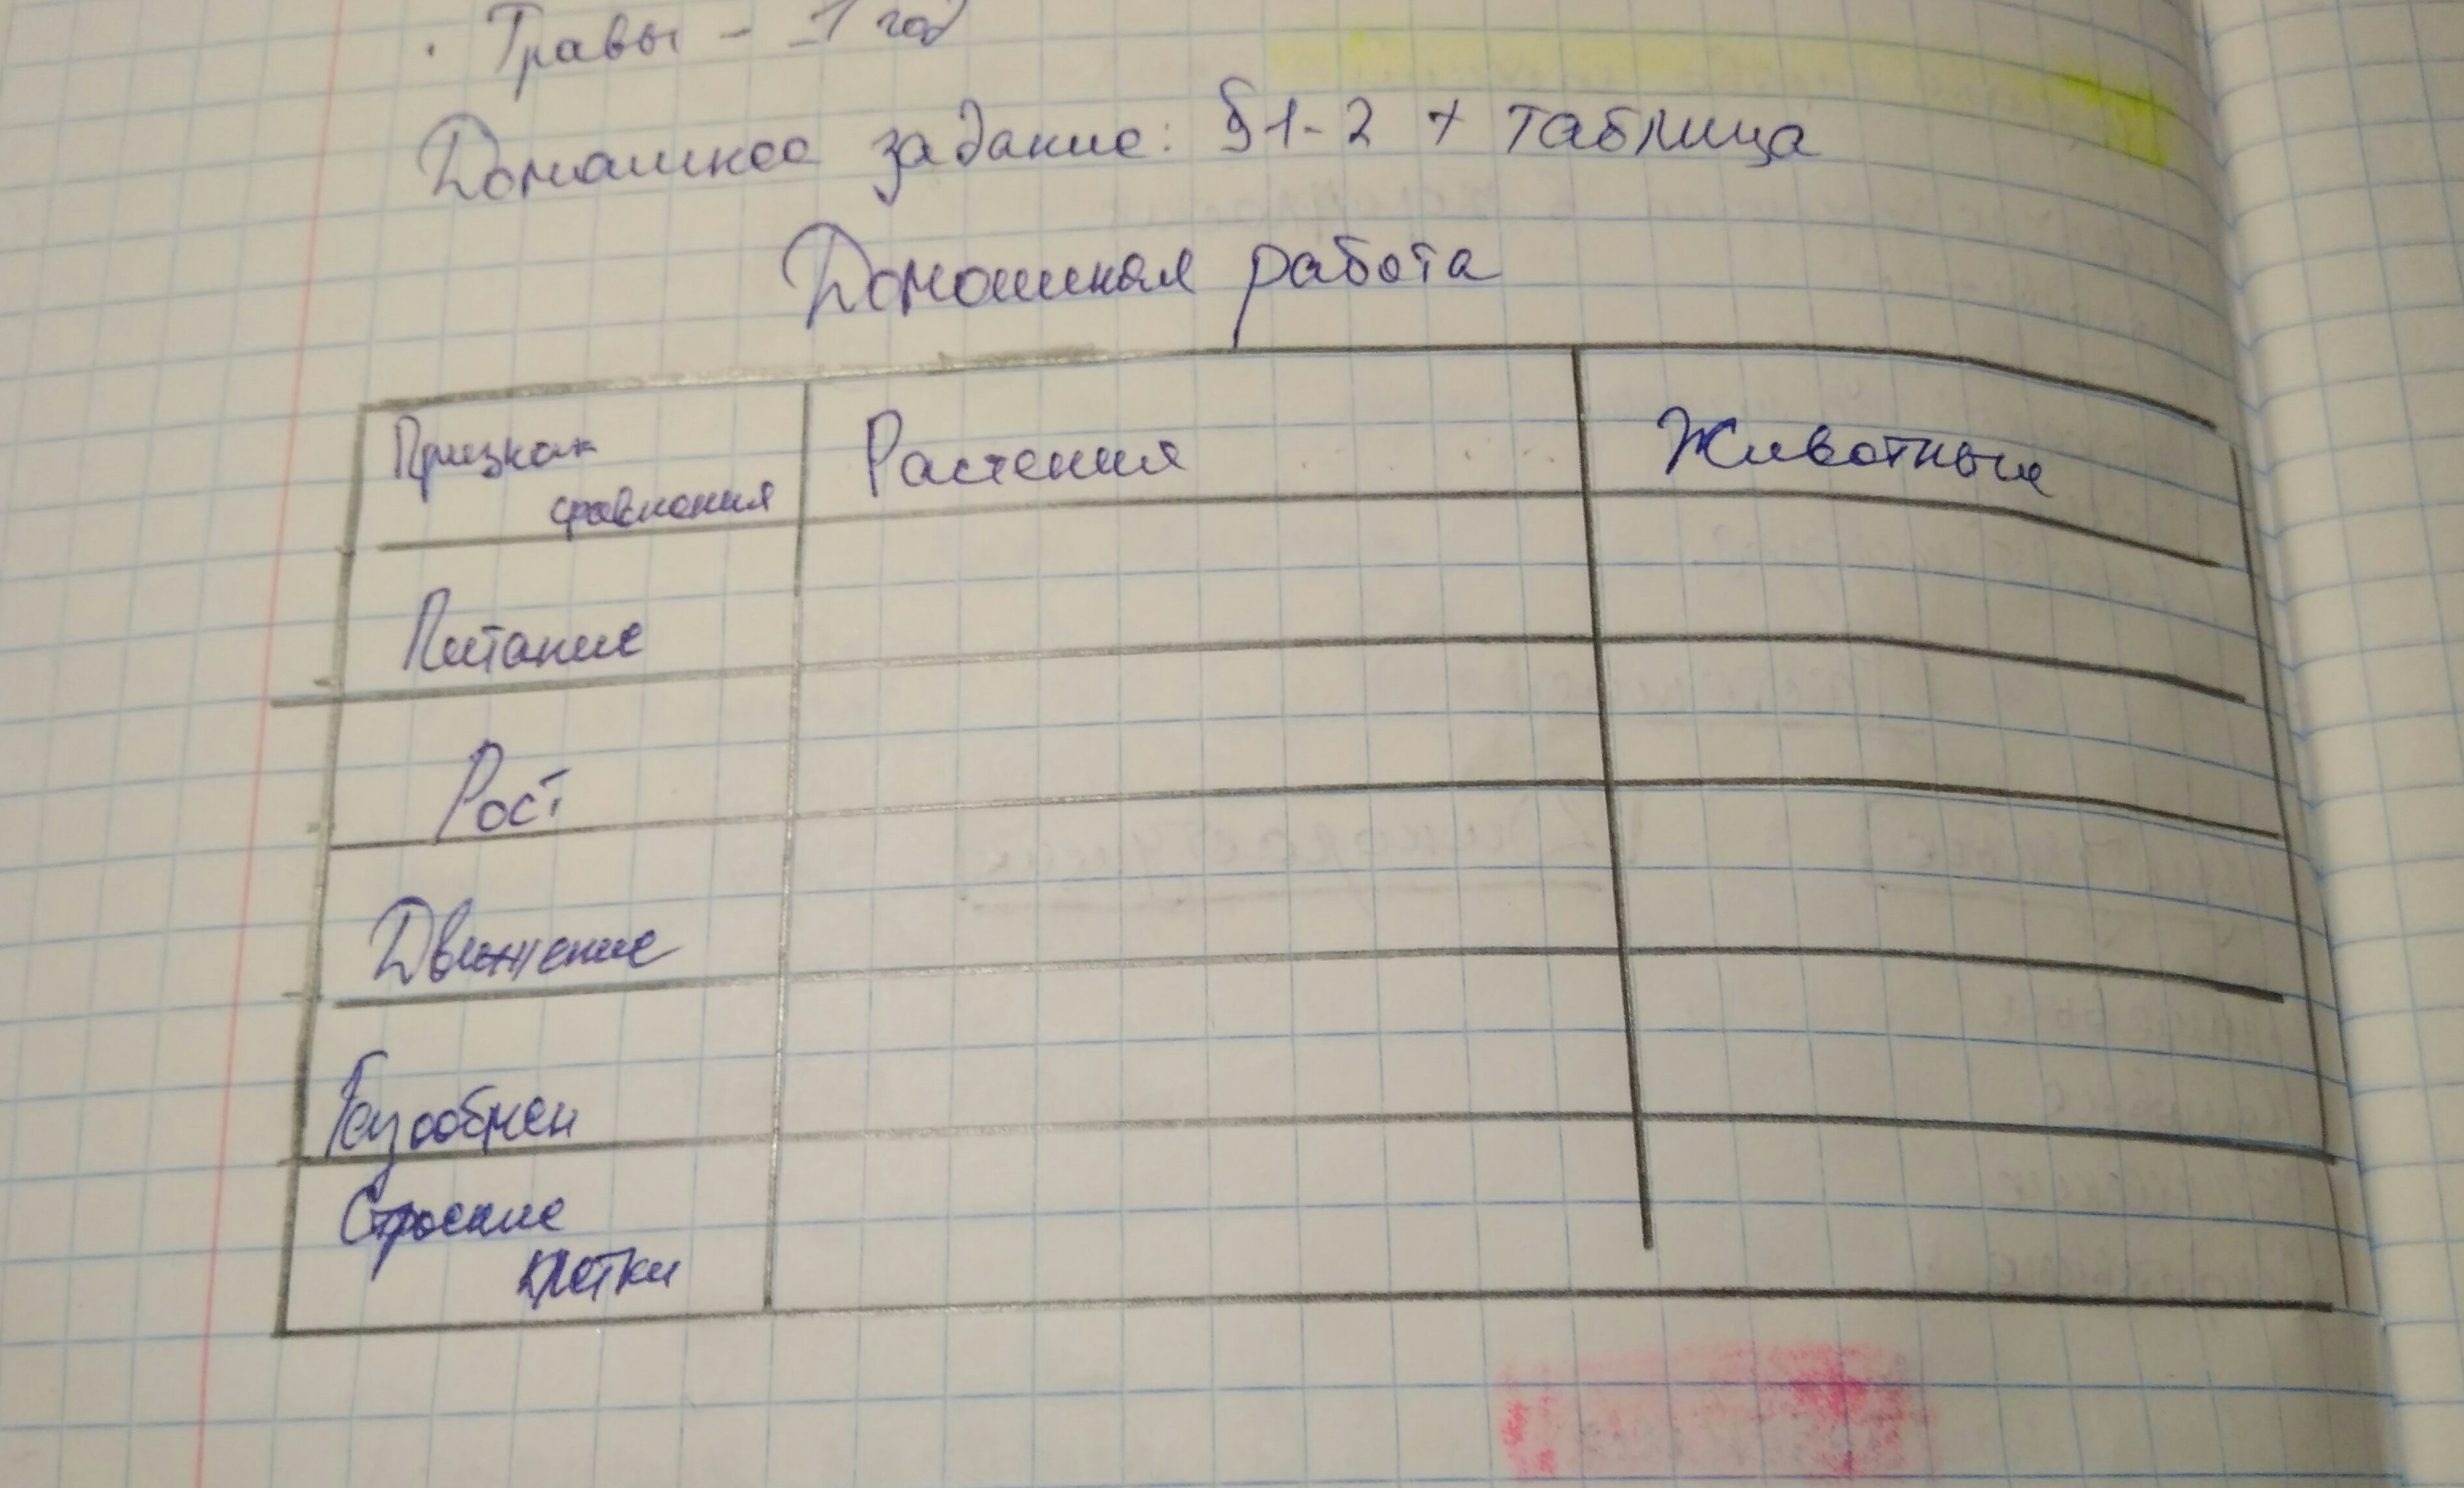 · Травы - 1 год
Домашнее задание: §1-2 + таблица
Домашняя работа
Признак
сравнения
Растения
Животные
Питание
Рост
Движение
Газообмен
Строение
клетки